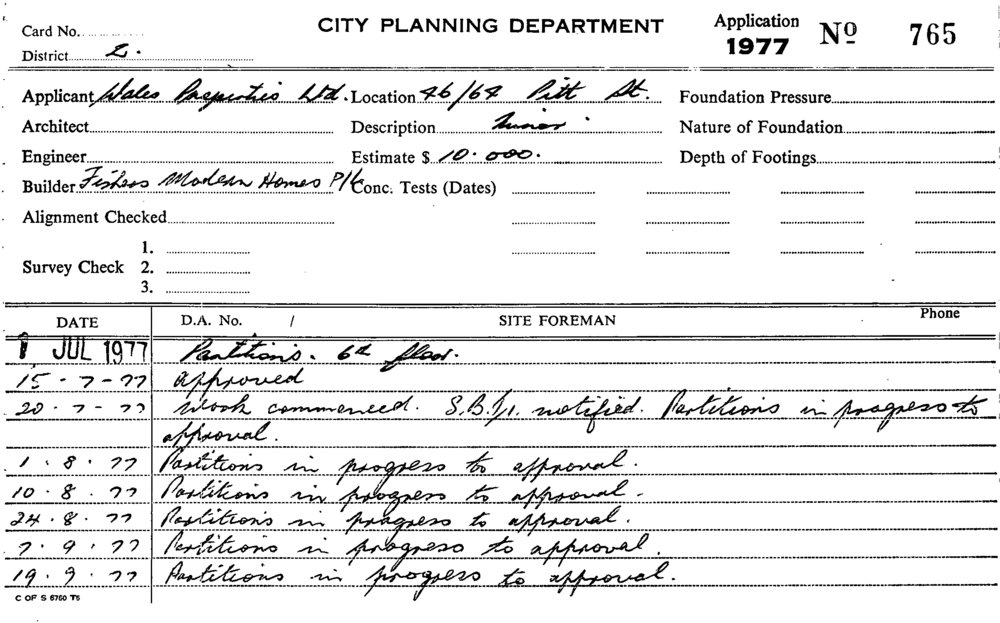 Card No.
CITY PLANNING DEPARTMENT
Application 1977 No 765
District 2.
Applicant Wales Properties Ltd. Location 46/64 Pitt St. Foundation Pressure
Architect Description Minor Nature of Foundation
Engineer Estimate $ 10.000. Depth of Footings
Builder Fishers Modern Homes P/L Conc. Tests (Dates)
Alignment Checked
1.
Survey Check 2.
3.
DATE D.A. No. / SITE FOREMAN Phone
1 JUL 1977 Partitions. 6th floor.
15-7-77 Approved
20-7-77 Work commenced. S.B.I. notified. Partitions in progress to
approval.
1.8.77 Partitions in progress to approval.
10.8.77 Partitions in progress to approval.
24.8.77 Partitions in progress to approval.
7.9.77 Partitions in progress to approval.
19.9.77 Partitions in progress to approval.
C OF S 6760 T5